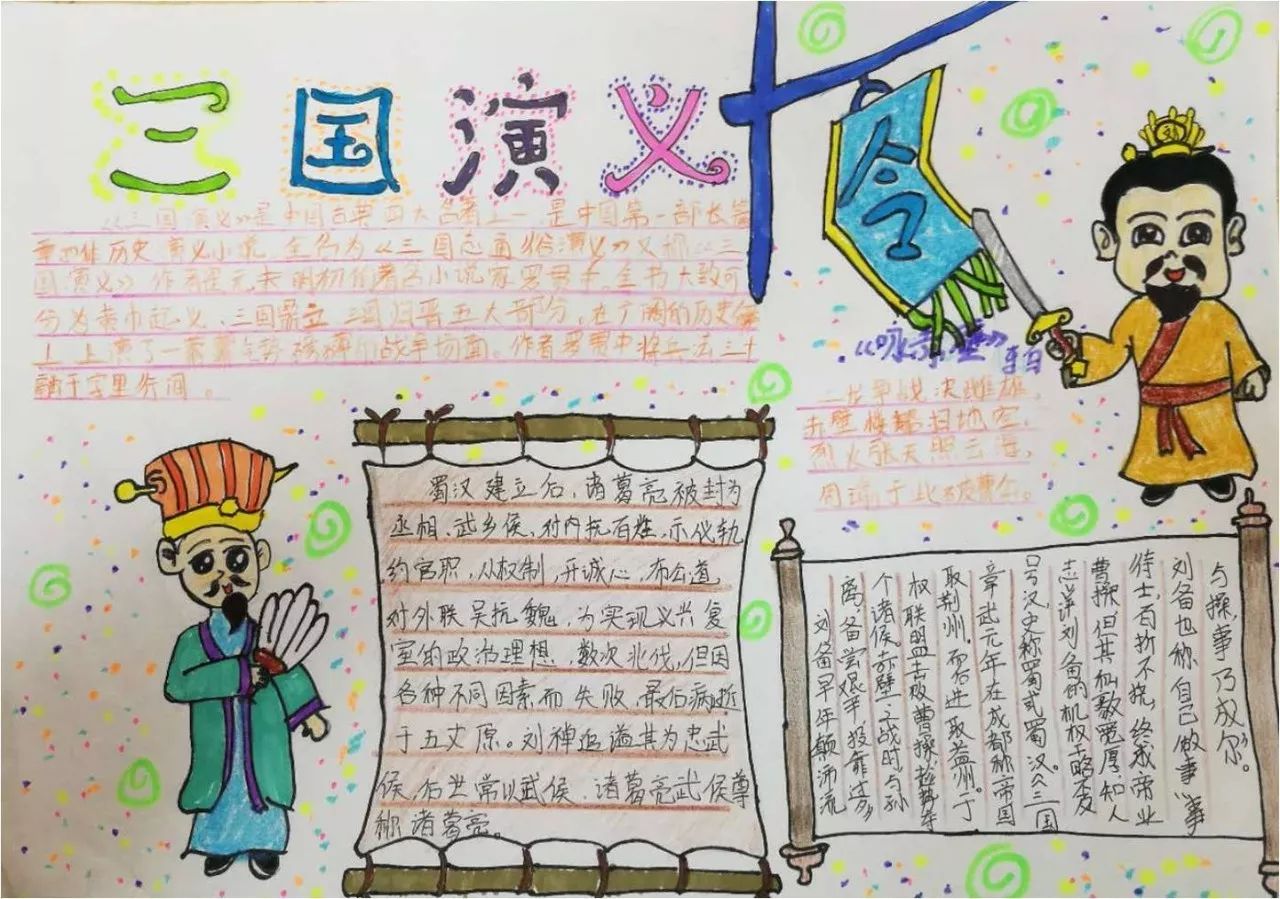 三国演义
《三国演义》是中国古典四大名著之一,是中国第一部长篇
章回体历史演义小说,全名为《三国志通俗演义》又称《三
国演义》作者是元末明初的著名小说家罗贯中。全书大致可
分为黄巾起义、三国鼎立、三国归晋五大部分,在广阔的历史舞
上,上演了一幕幕气势磅礴的战争场面。作者罗贯中将兵法三十
融于字里行间。
令
刘
《咏赤壁》
二龙争战决雌雄,
赤壁楼船扫地空,
烈火张天照云海,
周瑜于此破曹公。
蜀汉建立后,诸葛亮被封为
丞相、武乡侯,对内抚百姓,示仪轨
约官职,从权制,开诚心,布公道
对外联吴抗魏,为实现兴复
室的政治理想,数次北伐,但因
各种不同因素而失败,最后病逝
于五丈原。刘禅追谥其为忠武
侯,后世常以武侯、诸葛亮武侯尊
称诸葛亮。
刘备早年颠沛流
离,备尝艰辛,投靠过多
个诸侯。赤壁之战时,与孙
权联盟击破曹操,趁势夺
取荆州。而后进取益州。于
章武元年在成都称帝国
号汉,史称蜀或蜀汉。《三国
志》评刘备的机权干略不及
曹操,但其弘毅宽厚,知人
待士,百折不挠,终成帝业
刘备也称自己做事“事
与操,事乃成尔”。